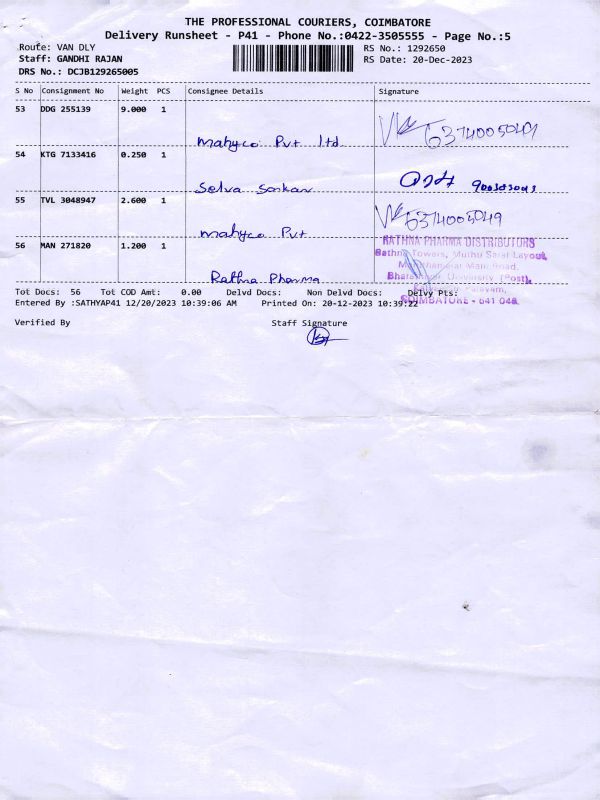 THE PROFESSIONAL COURIERS, COIMBATORE
Delivery Runsheet - P41 - Phone No.:0422-3505555 - Page No.:5
Route: VAN DLY
RS No.: 1292650
Staff: GANDHI RAJAN
RS Date: 20-Dec-2023
DRS No.: DCJB129265005
S No Consignment No Weight PCS Consignee Details Signature
53 DDG 255139 9.000 1
Mahyco Pvt ltd 6374005049
54 KTG 7133416 0.250 1
Selva Sankar
55 TVL 3048947 2.600 1
6374005049
Mahyco Pvt
56 MAN 271820 1.200 1
RATHNA PHARMA DISTRIBUTORS
Rathna Towers, Muthu Layout,
Road,
Rathna Pharma University (Post),
Tot Docs: 56 Tot COD Amt: 0.00 Delvd Docs: Non Delvd Docs: Delvy Pts:
COIMBATORE - 641 046.
Entered By :SATHYAP41 12/20/2023 10:39:06 AM Printed On: 20-12-2023 10:39:22
Verified By Staff Signature